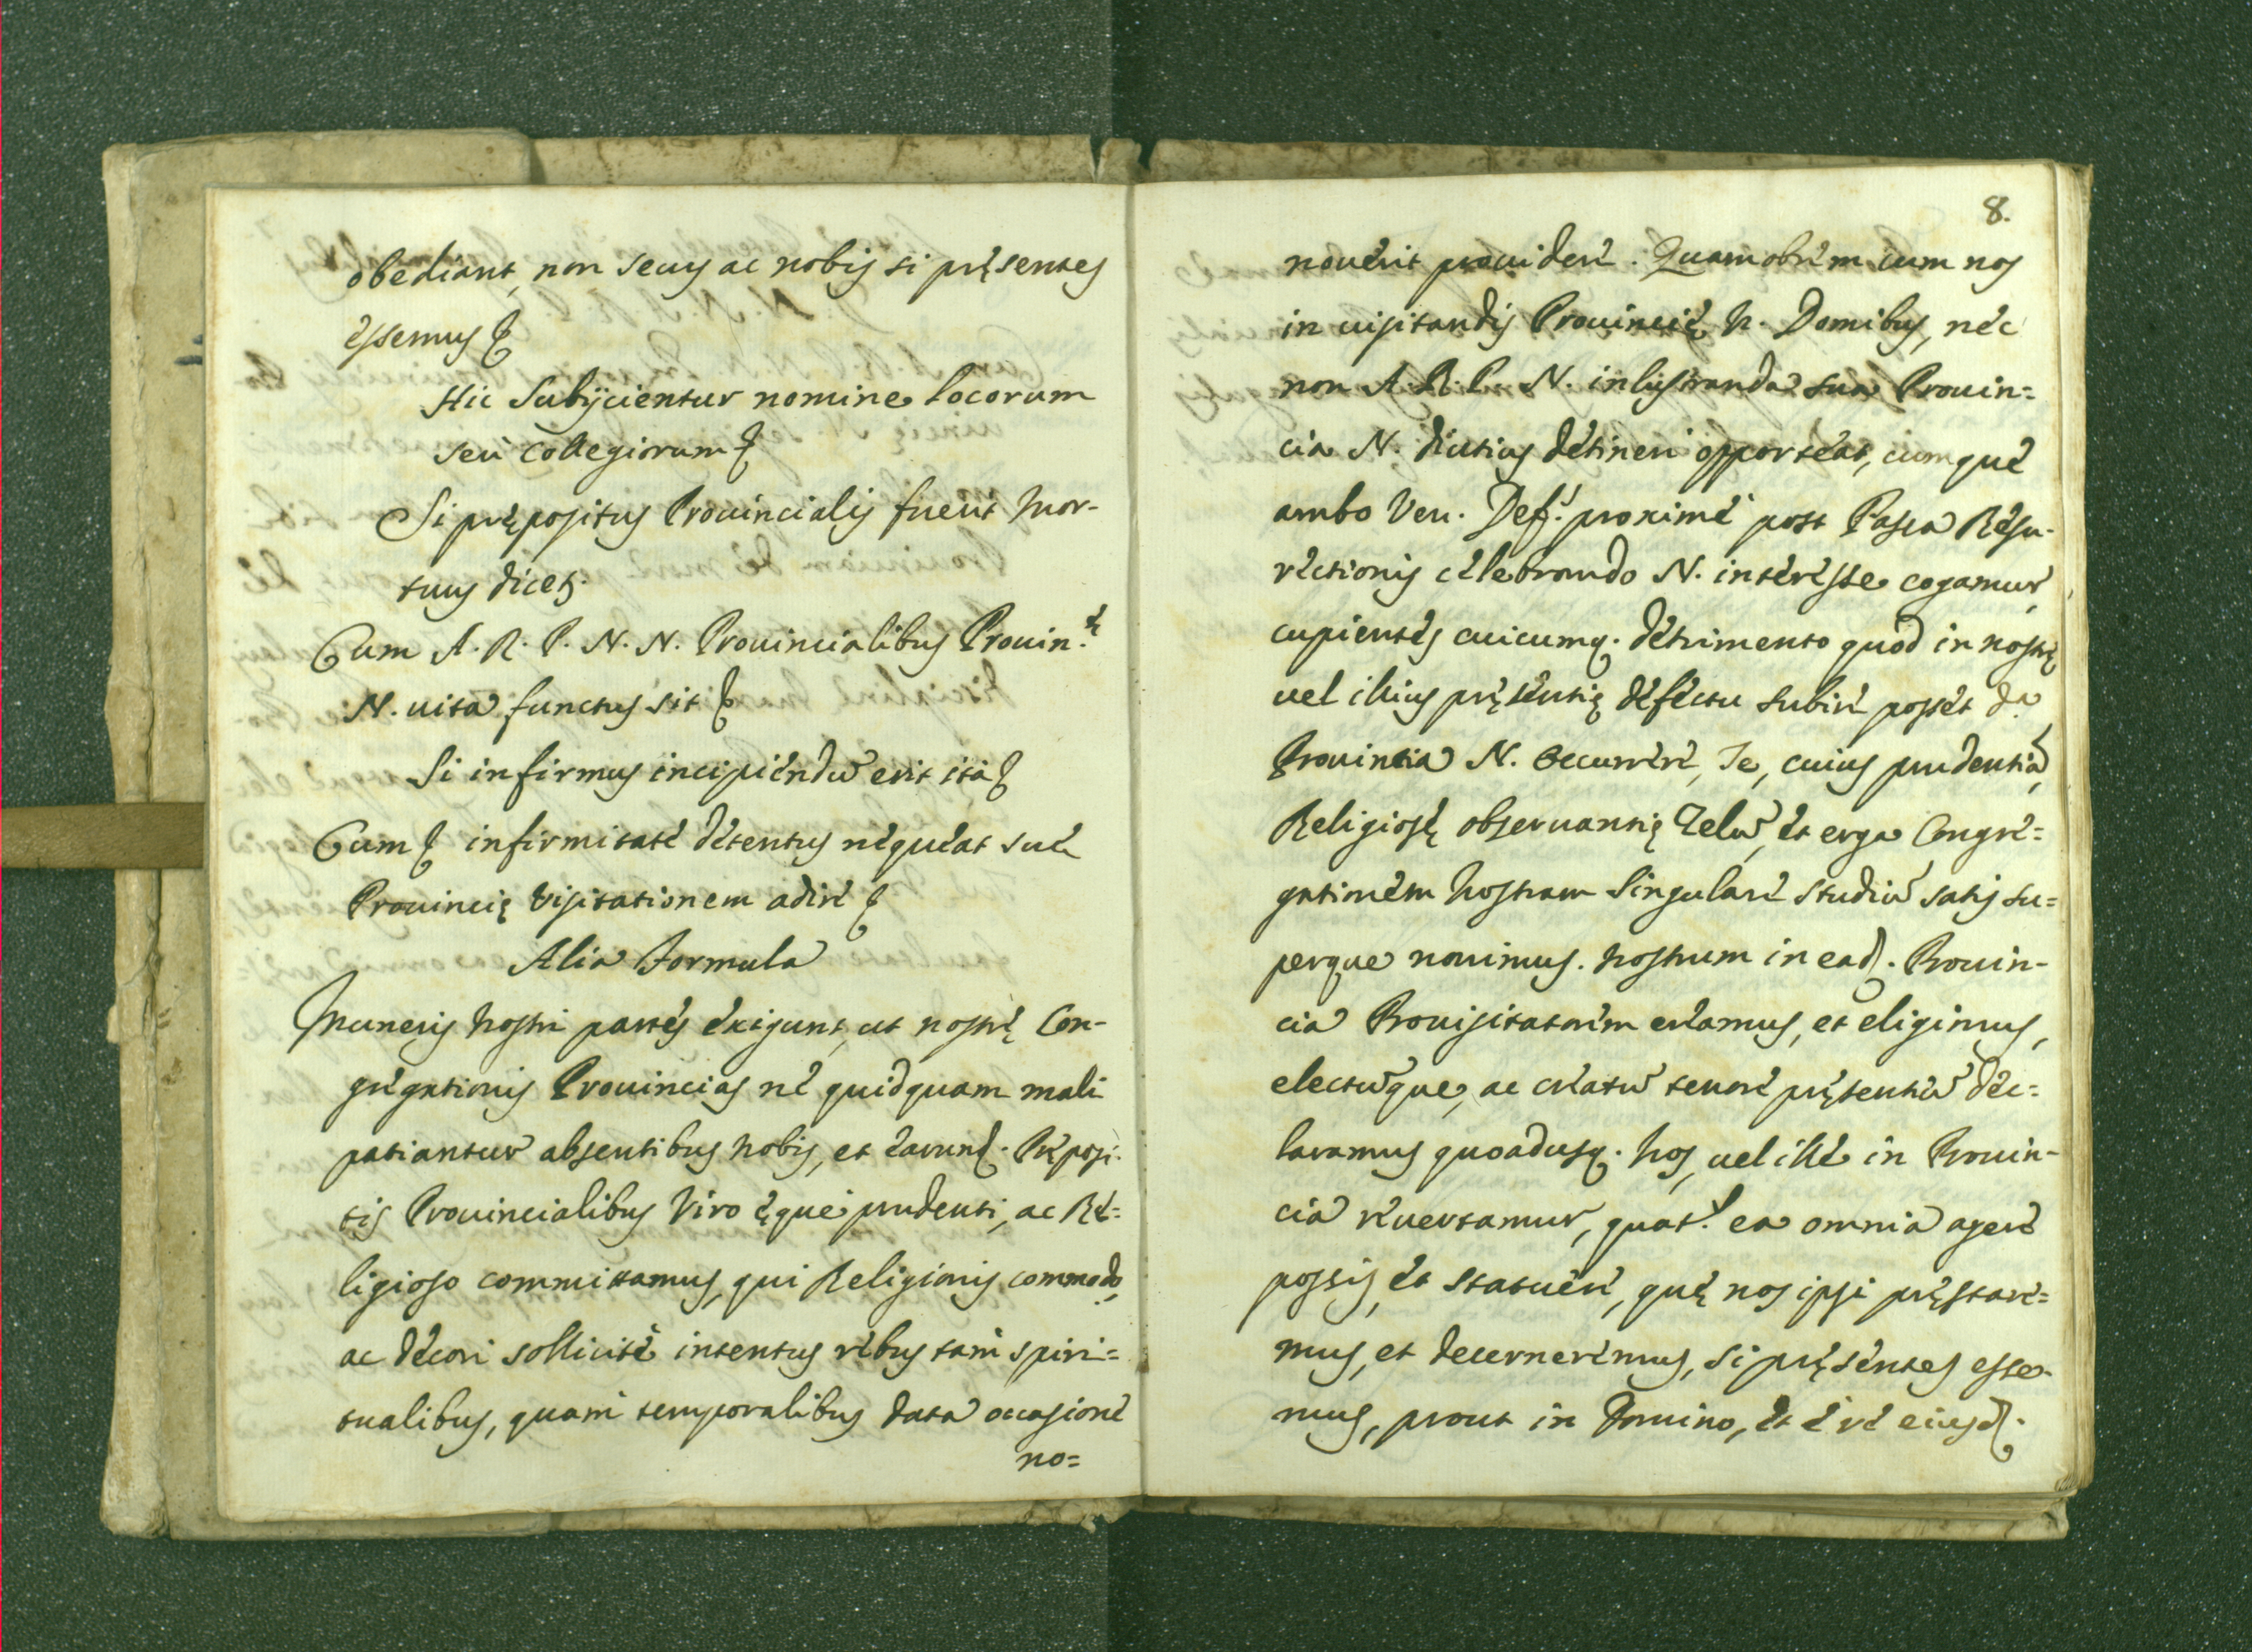 obediant, non secus ac nobis si pręsentes
essemus &
Hic Subijcientur nomine locorum
seu Collegiorum &
Si prępositus Prouincialis fuerit Mor-
tuus dicet.
Cum A. R. P. N. N. Prouincialibus Prouin.ę
N. uita functus sit &
Si infirmus incipiendũ erit ita &
Cum & infirmitate detentus nequeat suę
Prouincię Visitationem adire &
Alia Formula
Muneris Nostri partes exigunt, ut nostrę Con-
gregationis Prouincias ne quidquam mali
patiantur absentibus Nobis, et earund. Pręposi-
tis Prouincialibus Viro ęque prudenti, ac Re=
ligioso committamus, qui Religionis commodo,
ac decori sollicite intentus rebus tam spiri=
tualibus, quam temporalibus data occasione
no=
8.
nouerit prouidere. Quamobrem cum nos
in uisitandis Prouincię N. Domibus, nec
non A. R. P. N. in lustranda sua Prouin=
cia N. diutius detineri opporteat, cumque
ambo Ven. Def. proxime post Pasca Resu-
rectionis celebrando N. interesse cogamur,
cupientes cuicumq. detrimento quod in nostrę
uel illius pręsentię defectu subire posset d.a
Prouintia N. occurrere, Te, cuius prudentia,
Religiosę obseruantię Zelũ, et erga Congre=
gationem Nostram Singulare studiũ satis su=
perque nouimus. Nostrum in ead. Prouin-
cia Prouisitatorem creamus, et eligimus,
electũque, ac creatũ tenore pręsentiũ dec=
laramus quoadusq. Nos, uel ille in Prouin-
cia reuertamur, quat. ea omnia agere
possis, et statuere, quę nos ipsi pręstare=
mus, et decerneremus, si pręsentes esse-
mus, prout in Domino, et è re eiusd.